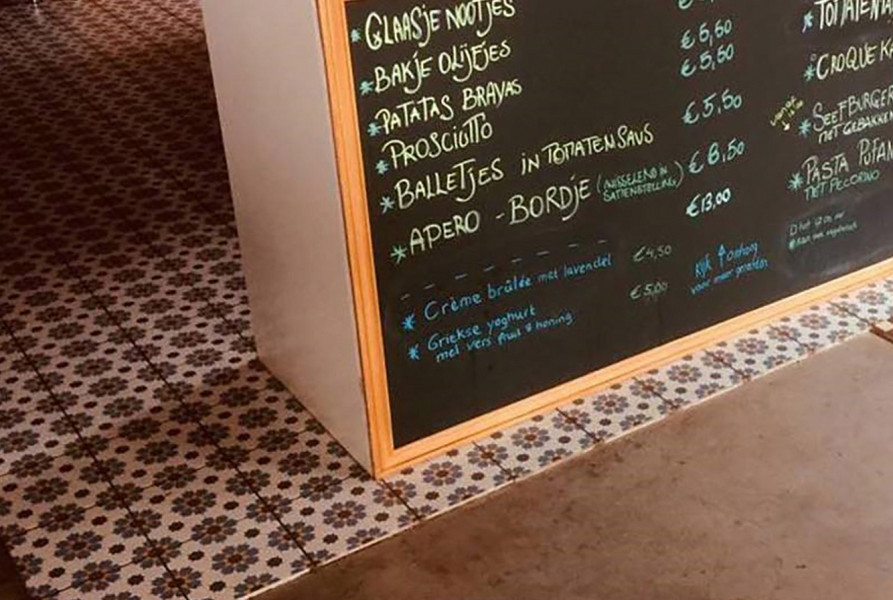 * GLAASJE NOOTJES
* BAKJE OLIJFJES €5,50
* PATATAS BRAVAS €5,50
* PROSCIUTTO €5,50
* BALLETJES IN TOMATENSAUS €8,50
* APERO - BORDJE (WISSELEND IN SAMENSTELLING) €13,00
* Crème brûlée met lavendel €4,50
* Griekse yoghurt €5,00
met vers fruit & honing
kijk ↑ omhoog
voor meer
vanaf
* CROQUE
* SEEFBURGER
MET GEBAKKEN
* PASTA
MET PECORINO